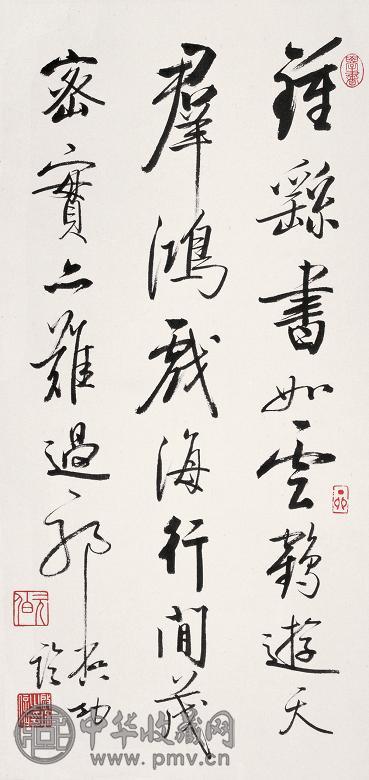 鍾繇書如雲鶴遊天
羣鴻戲海行間茂
密實亦難過
啟功臨
元白
中华收藏网
www.pmv.cn